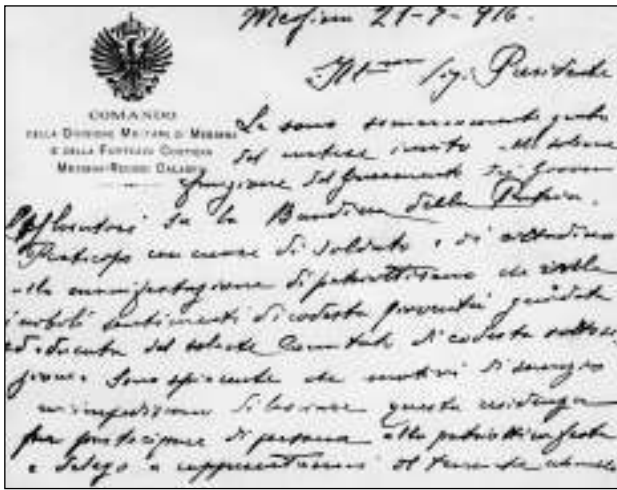 Messina 21-7-916.
Ill.mo Sig. Presidente
COMANDO
DELLA DIVISIONE MILITARE DI MESSINA
E DELLA FORTEZZA COSTIERA
MESSINA-REGGIO CALABRIA
Le sono sommamente grato
del cortese invito alla solenne
funzione del giuramento dei Giovani
Esploratori su la Bandiera della Patria.
Partecipo con cuore di soldato e di cittadino
alla manifestazione di patriottismo che
i nobili sentimenti di codesta gioventù guidata
ed educata dal solerte Comitato di codesta
Sono spiacente che motivi di servizio
mi impediscono di lasciare questa residenza
per partecipare di persona alla patriottica festa
e delego a rappresentarmi il tenente